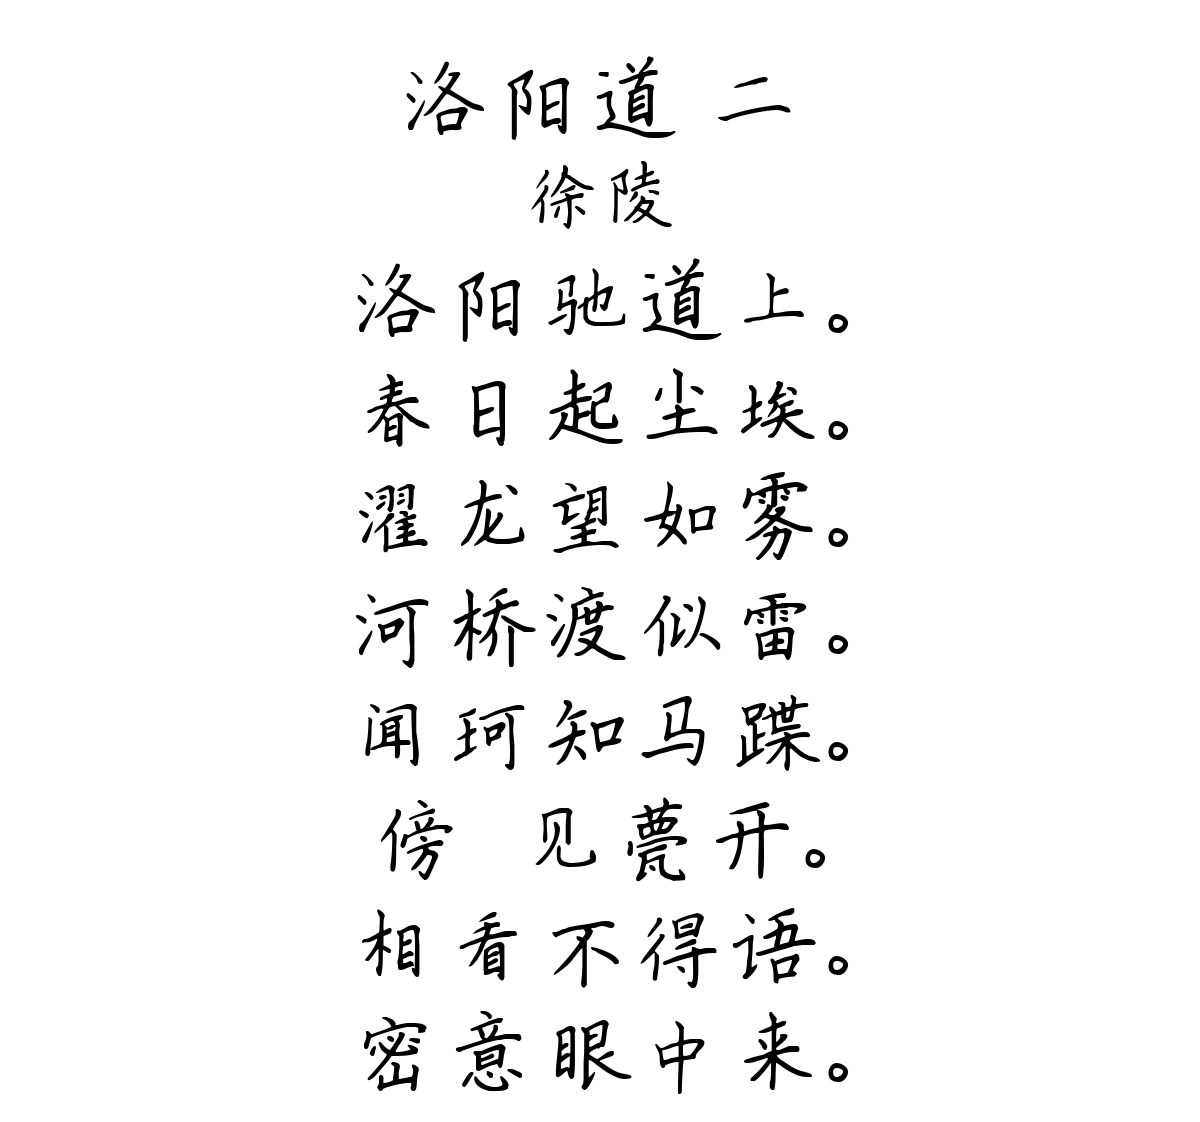 洛阳道 二
徐陵
洛阳驰道上。
春日起尘埃。
濯龙望如雾。
河桥渡似雷。
闻珂知马蹀。
傍 见甍开。
相看不得语。
密意眼中来。